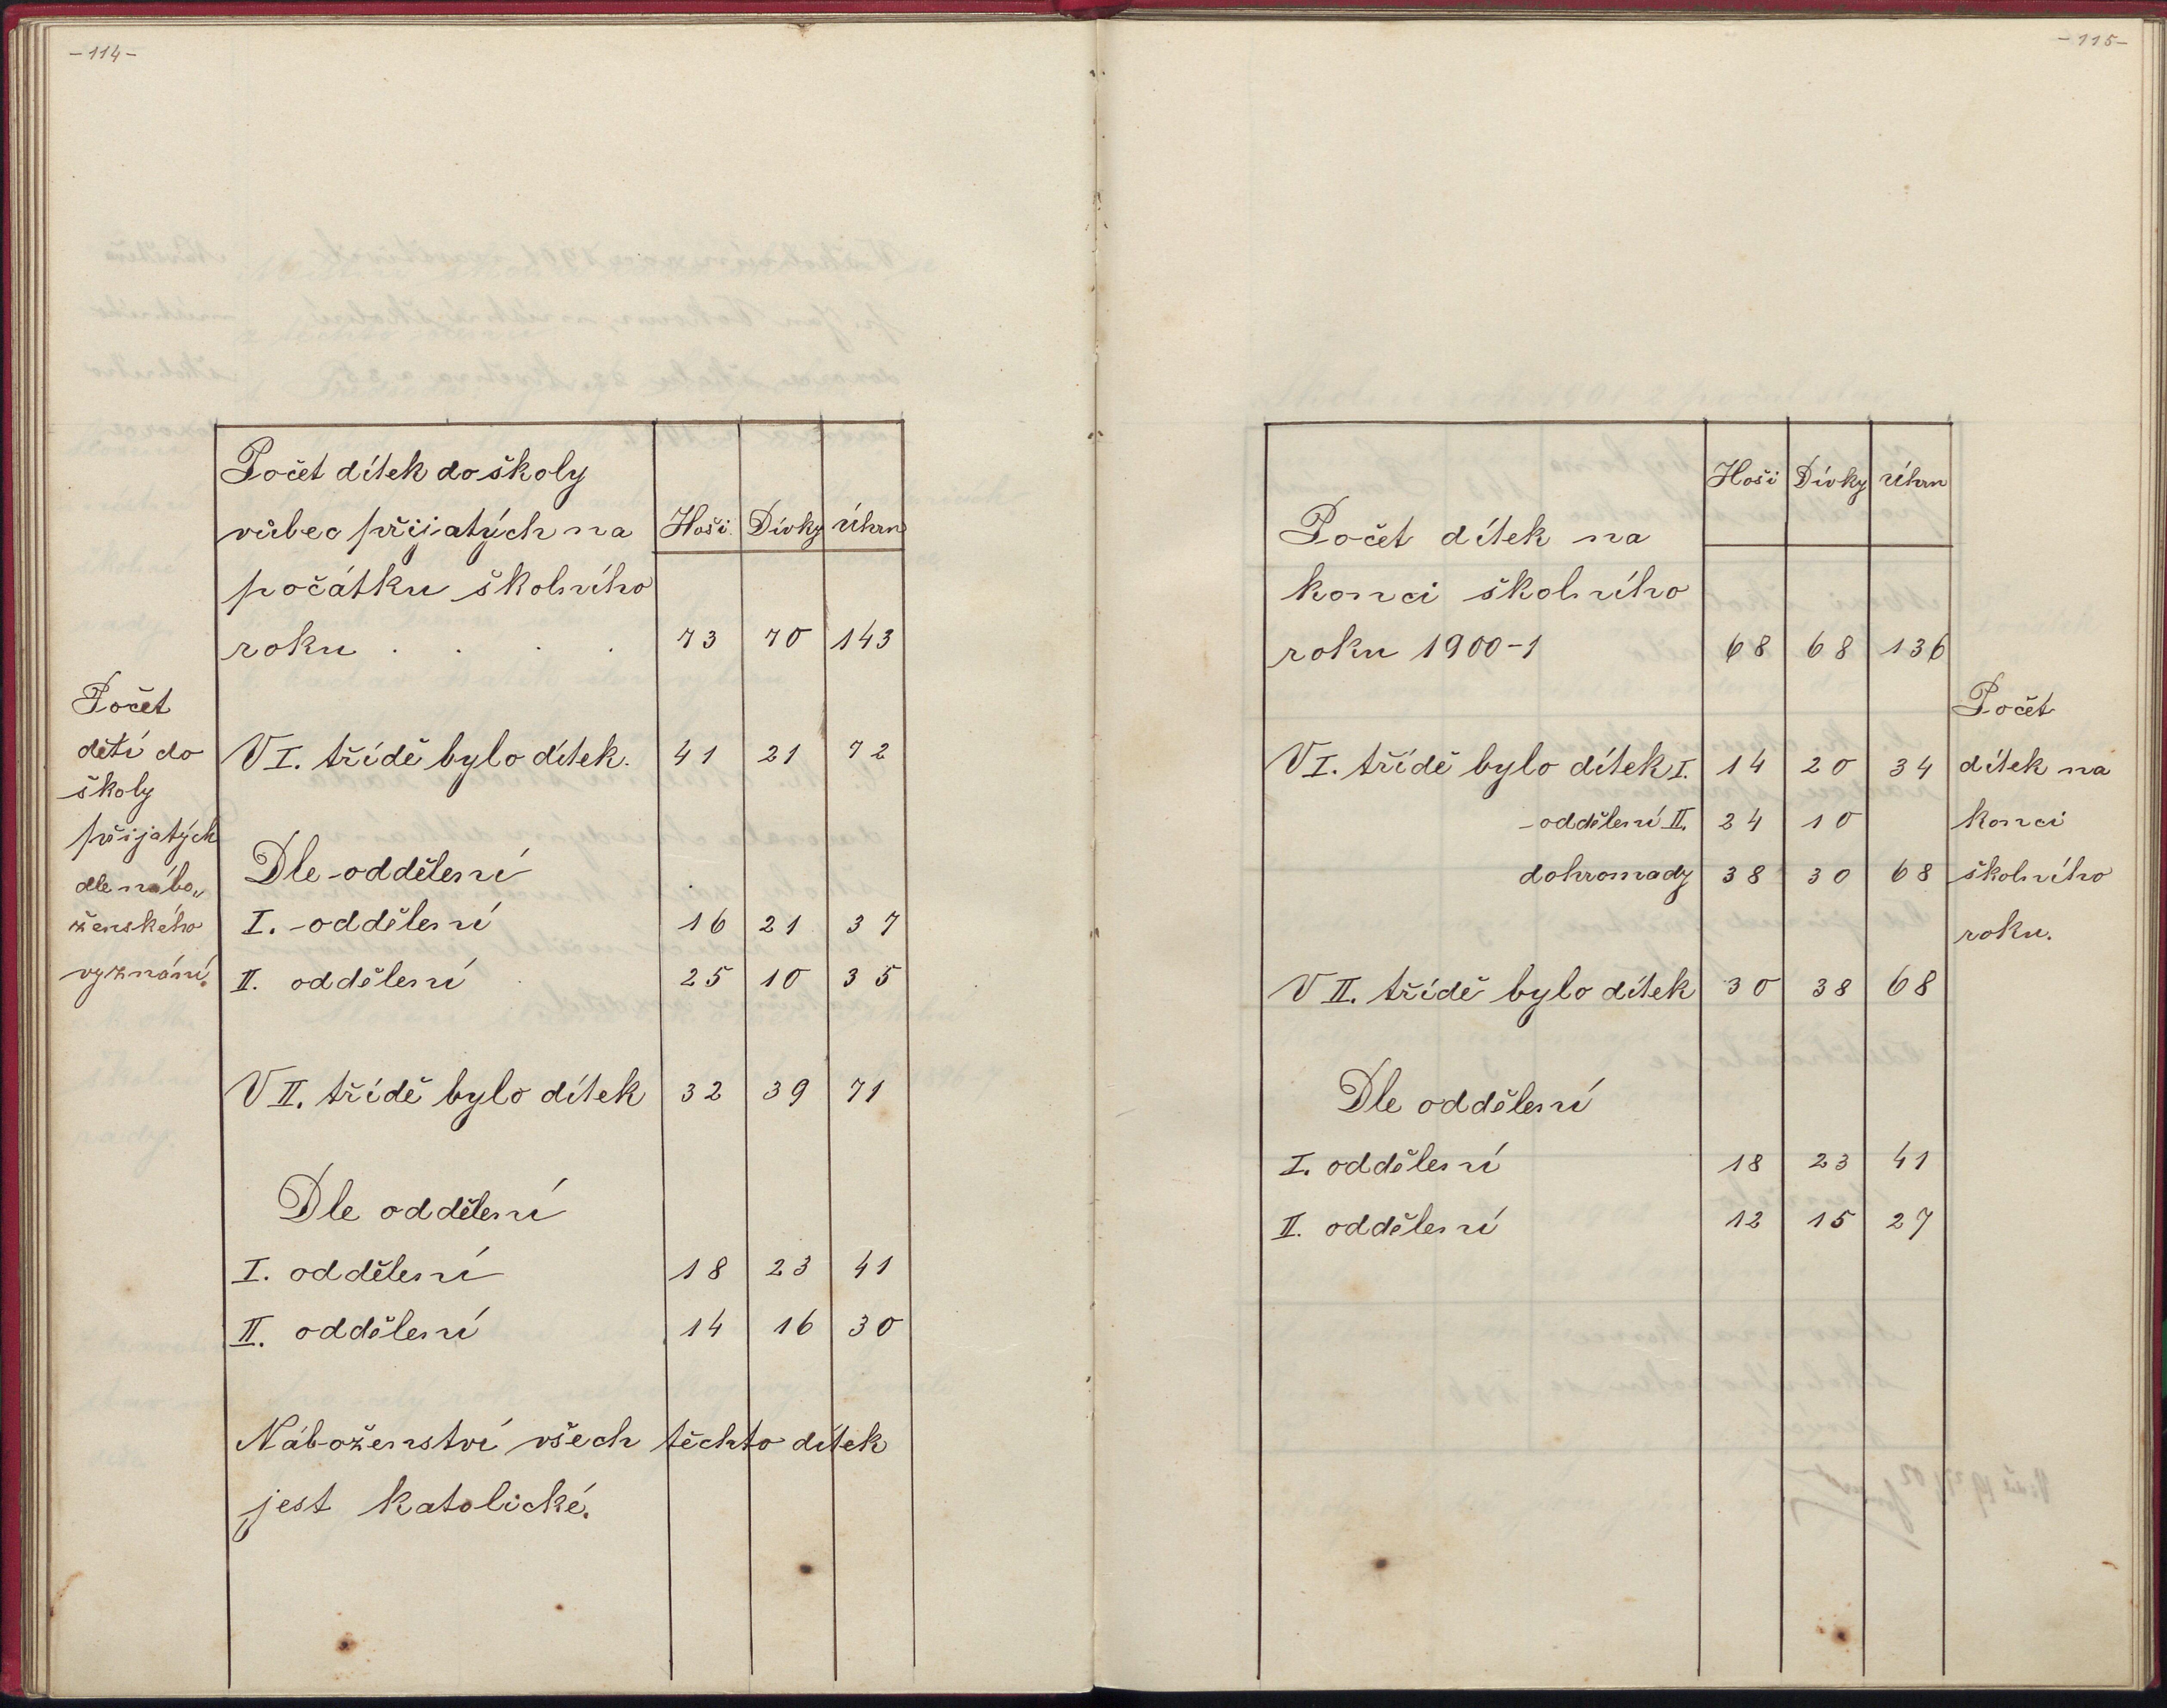 -114-
Počet dítek do školy
vůbec přijatých na Hoši Dívky Úhrn
počátku školního
roku . . . . 73 70 143
Počet
dětí do
školy
přijatých
dle nábo„
ženského
vyznání.
V I. třídě bylo dítek. 41 21 72
Dle oddělení
I. oddělení 16 21 37
II. oddělení 25 10 35
V II. třídě bylo dítek 32 39 71
Dle oddělení
I. oddělení 18 23 41
II. oddělení 14 16 30
Náboženství všech těchto dítek
jest katolické.
-115-
Hoši Dívky Úhrn
Počet dítek na
konci školního
roku 1900-1 68 68 136
V I. třídě bylo dítek I. 14 20 34
oddělení II. 24 10
dohromady 38 30 68
V II. třídě bylo dítek 30 38 68
Dle oddělení
I. oddělení 18 23 41
II. oddělení 12 15 27
Počet
dítek na
konci
školního
roku.